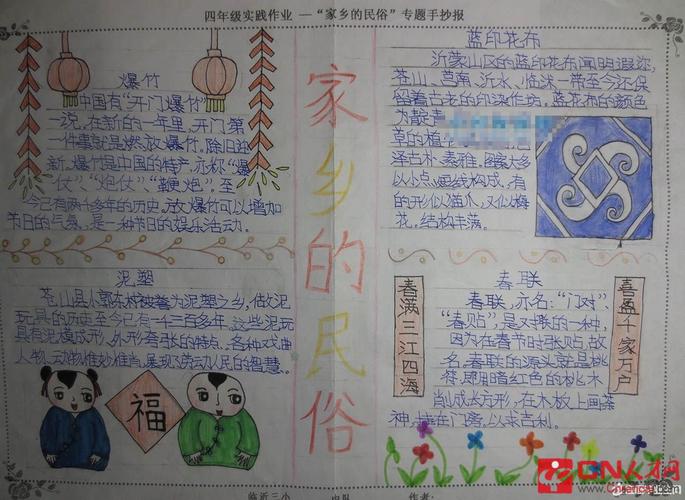 四年级实践作业 —“家乡的民俗”专题手抄报
家乡的民俗
爆竹
中国有“开门爆竹”
一说，在新的一年里，开门第
一件事就是燃放爆竹，除旧迎
新。爆竹是中国的特产，亦称“爆
仗”“炮仗”“鞭炮”，至
今已有两千多年的历史。放爆竹可以增加
节日的气氛，是一种节日的娱乐活动。
蓝印花布
沂蒙山区的蓝印花布闻明遐迩，
苍山、莒南、沂水、临沭一带至今还保
留着古老的印染作坊，蓝花布的颜色
为靛声
草的植
泽古朴素雅，图案大多
以小点、短线构成，有
的形似猫爪，又似梅
花，结构丰满。
泥塑
苍山县小郭东村被誉为泥塑之乡，做泥
玩具的历史至今已有一千三百多年，这些泥玩
具有泥模成形、外形夸张的特点，各种戏曲
人物、动物惟妙惟肖，展现了劳动人民的智慧。
福
春联
春联，亦名：“门对”
“春贴”，是对联的一种，
因为在春节时张贴，故
名。春联的源头就是桃
符，即用暗红色的桃木
削成长方形，在木板上画荼
神，挂在门旁，以求吉利。
春满三江四海
喜盈千家万户
临沂三小 中队 作者：
CN人才网